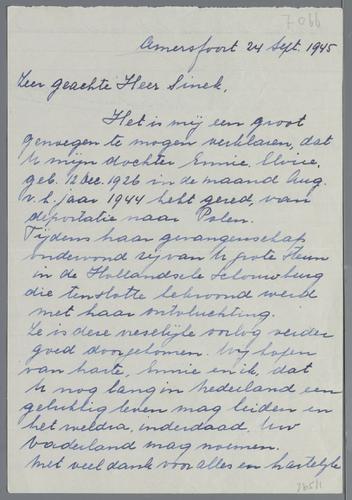 7066
Amersfoort 24 Sept. 1945
Zeer geachte Heer Sinek,
Het is mij een groot
genoegen te mogen verklaren, dat
U mijn dochter Ennie,
geb. 12 Dec. 1926 in de maand Aug.
v.h. jaar 1944 hebt gered, van
deportatie naar Polen.
Tijdens haar gevangenschap
ondervond zij van U grote steun
in de Hollandsche Schouwburg
die tenslotte bekroond werd
met haar ontvluchting.
Ze is deze vreselijke oorlog verder
goed doorgekomen. Wij hopen
van harte, Ennie en ik, dat
U nog lang in Nederland een
gelukkig leven mag leiden en
het weldra, inderdaad, Uw
Vaderland mag noemen.
Met veel dank voor alles en hartelijke